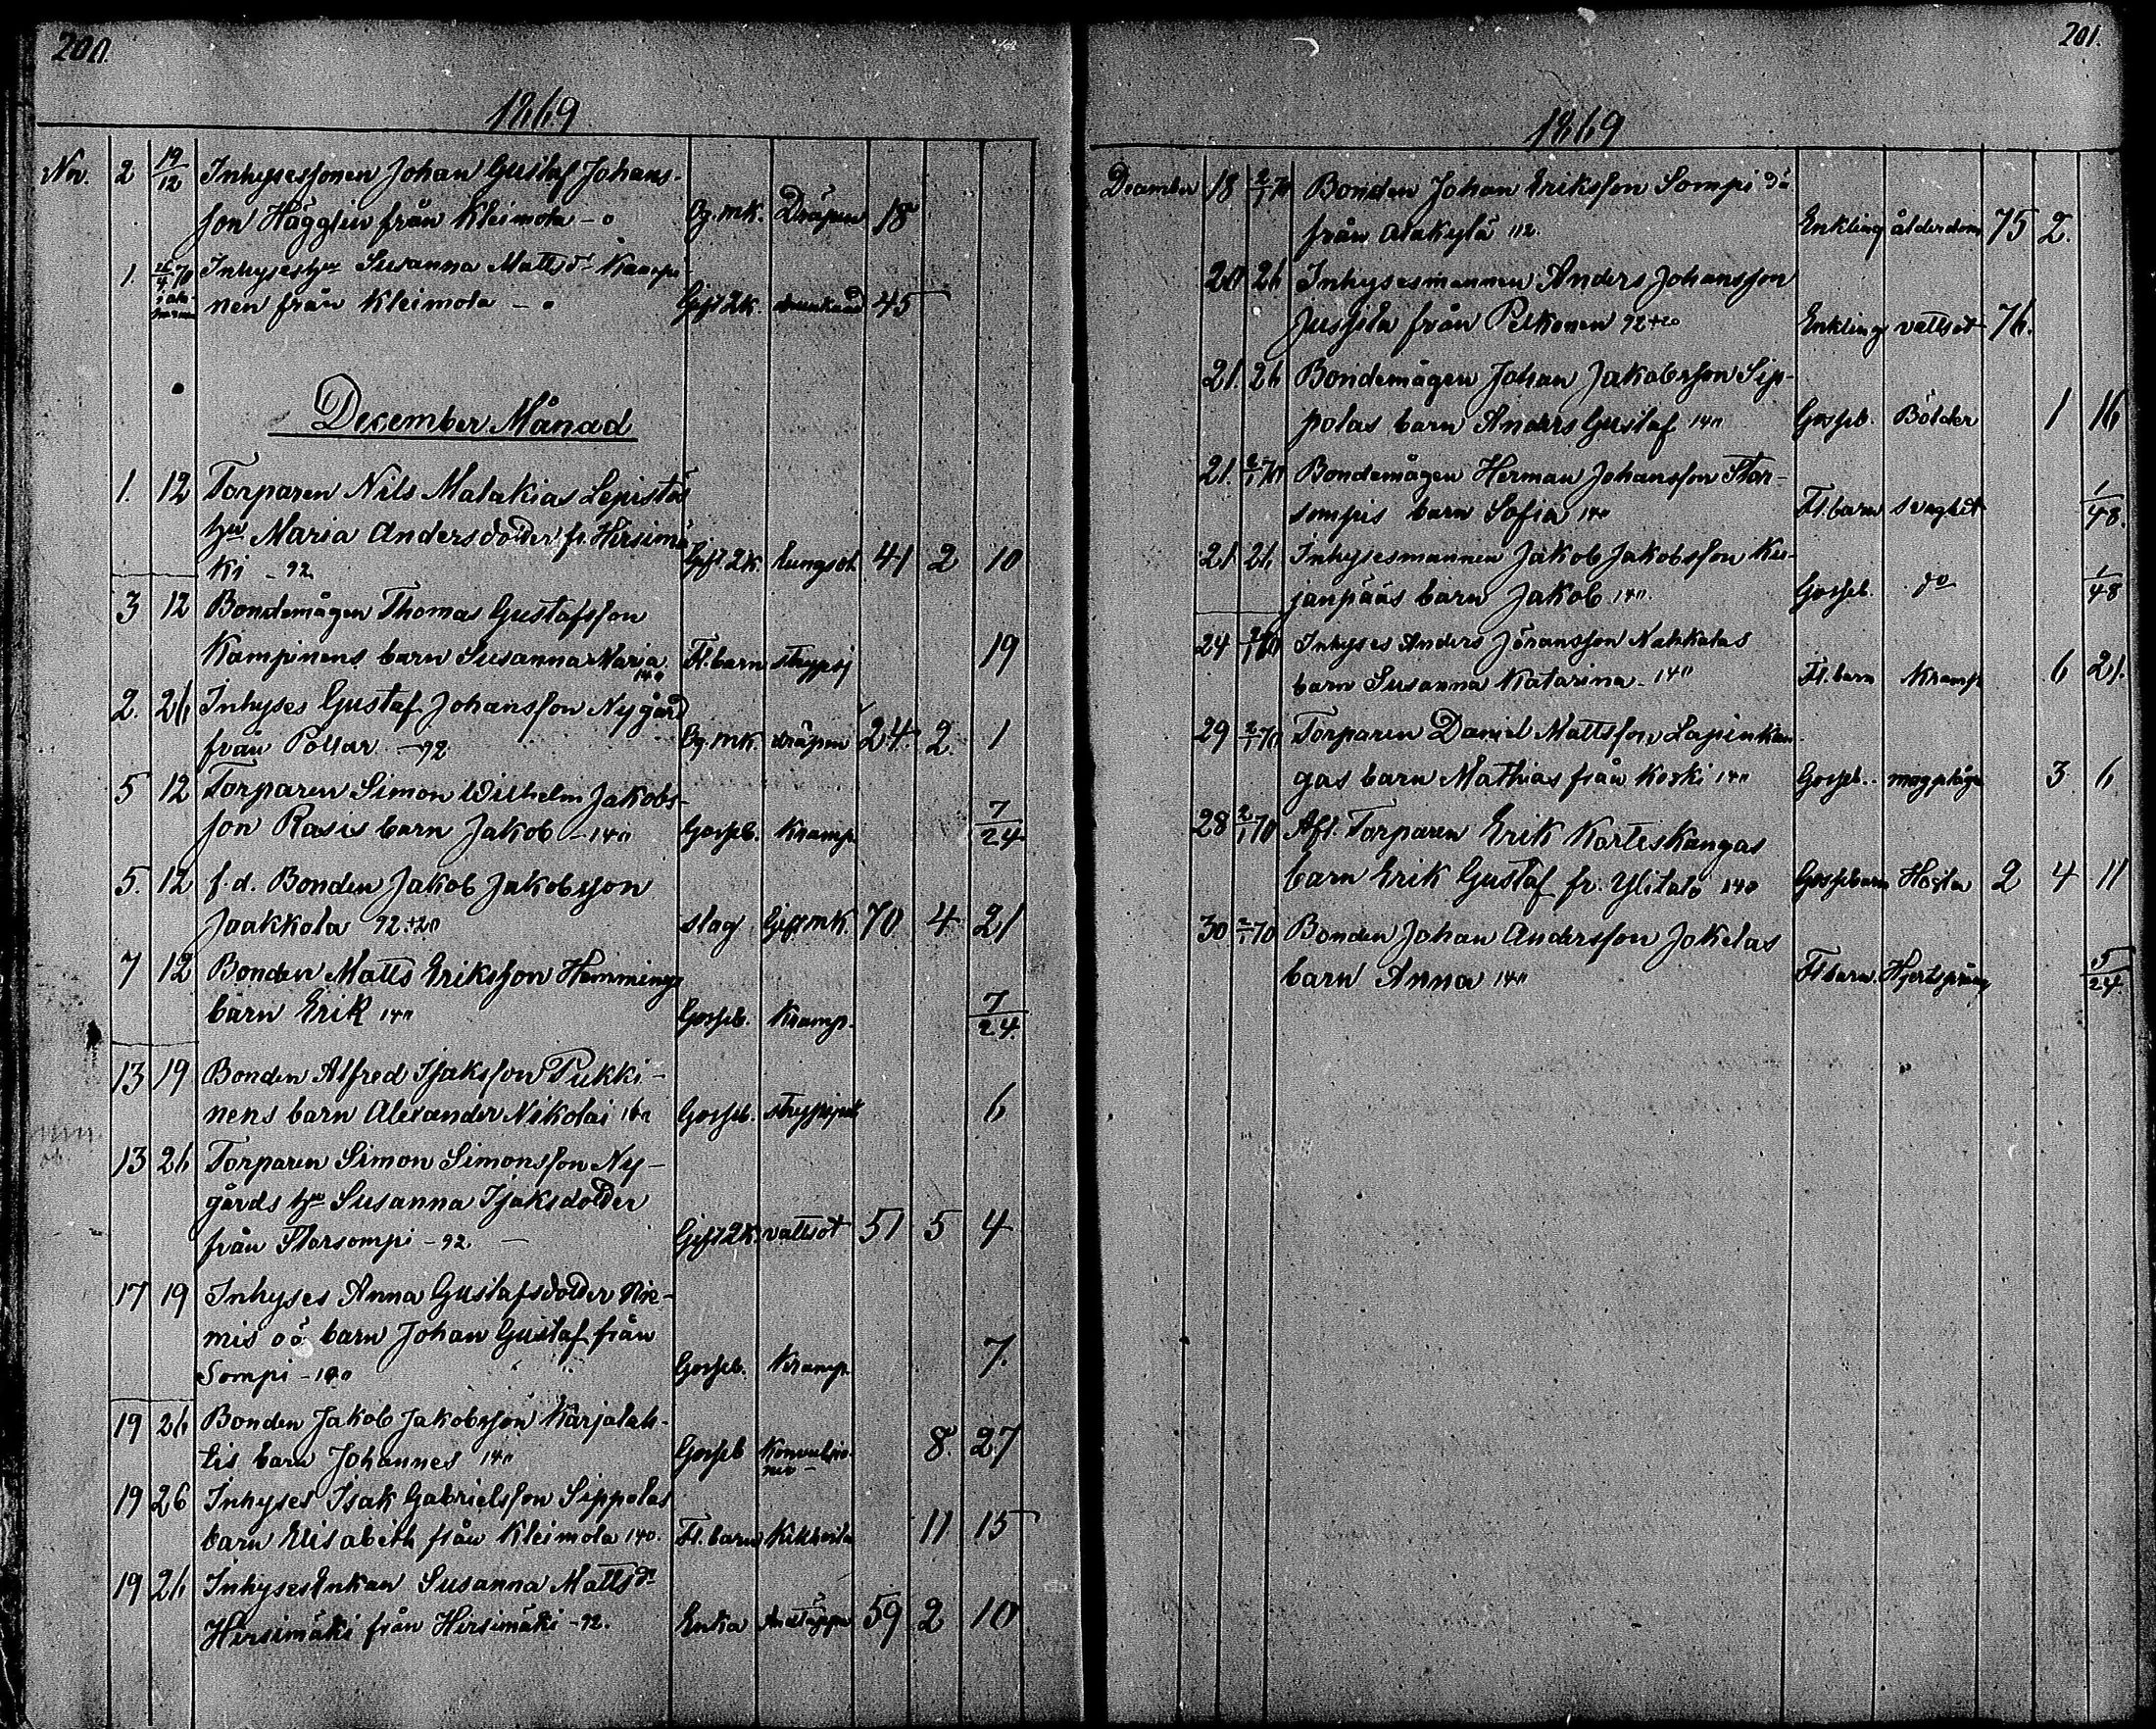 200.
1869
Nov. 2 19/12 Inhysessonen Johan Gustaf Johans-
son Hägglin från Kleimola - o Og. mk. Dräpen 18
1. 26/4 70 Inhyseshu Susanna Mattsdr Kampi-
nen från Kleimola - o Gift 2k. drunknad 45
December Månad
1. 12 Torparen Nils Malakias Lepistös
hu Maria Andersdotter fr. Hirsimä
ki - 92. Gift 2k. Lungsot 41 2 10
3 12 Bondemågen Thomas Gustafsson
Kampinens barn Susanna Maria Fl. barn strypsj 19
140
2. 26 Inhyses Gustaf Johansson Nygård
från Pollar - 92 Og. mk dräpen 24. 2 1
5 12 Torparen Simon Wilhelm Jakobs-
son Rasis barn Jakob - 140 Gosseb. Kramp 7/24
5. 12 f.d. Bonden Jakob Jakobsson
Jaakkola 92+20 slag Gift mk. 70 4 21
7 12 Bonden Matts Eriksson Hemmings
barn Erik 140 Gosseb. Kramp. 7/24.
13 19 Bonden Alfred Isaksson Pukki-
nens barn Alexander Nikolai 140 Gosseb. strypsjuk 6
13 26 Torparen Simon Simonsson Ny-
gårds hu Susanna Isaksdotter
från Storsompi - 92. Gift 2k. vattsot 51 5 4
17 19 Inhyses Anna Gustafsdotter Nie-
mis oä barn Johan Gustaf från
Sompi - 140 Gosseb. Kramp 7.
19 26 Bonden Jakob Jakobsson Karjalah-
tis barn Johannes 140 Gosseb 8. 27
19 26 Inhyses Isak Gabrielsson Sippolas
barn Elisabeth från Kleimola 140. Fl. barn Kikhosta 11 15
19 26 Inhysesenkan Susanna Mattsdr
Hirsimäki från Hirsimäki - 92. Enka Andtäppa 59 2 10
201.
1869
December 18 2/1 70 Bonden Johan Eriksson Sompi
från Alakylä 112. Enkling ålderdom 75 2.
20 26 Inhysesmannen Anders Johansson
Jussila från Pelkonen 92+20 Enkling vattsot 76.
21. 26 Bondemågen Johan Jakobsson Sip-
polas barn Anders Gustaf 140 Gosseb. Bölder 1 16
21. 2/1 70 Bondemågen Herman Johansson Stor-
sompis barn Sofia 140 Fl. barn svaghet 1/48.
21 26 Inhysesmannen Jakob Jakobsson Ku-
janpääs barn Jakob 140. Gosseb. do 1/48
24 2/1 70 Inhyses Anders Jöransson Nahkalas
barn Susanna Katarina - 140 Fl. barn Kramp 6 21.
29 2/1 70 Torparen Daniel Mattsson Lapinkan
gas barn Mathias från Koski 140 Gosseb. magplåga 3 6
28 2/1 70 Afl. Torparen Erik Korteskangas
barn Erik Gustaf fr. Ylitalo 140 Gossebarn Hosta 2 4 11
30 2/1 70 Bonden Johan Andersson Jokelas
barn Anna 140 Fl barn. Hjertsprång 5/24.